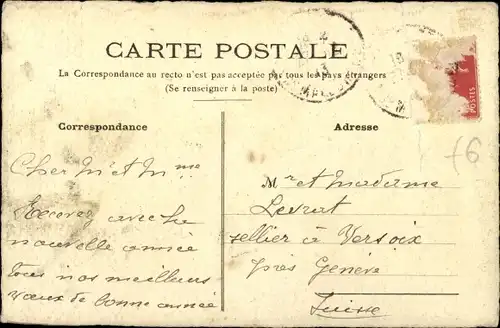 CARTE POSTALE
La Correspondance au recto n'est pas acceptée par tous les pays étrangers
(Se renseigner à la poste)
Correspondance
Adresse
Cher Mr et Mme
Recevez avec la
nouvelle année
tous nos meilleurs
vœux de bonne année
Mr et Madame
Levrat
sellier à Versoix
près Genève
Suisse
POSTES
f6